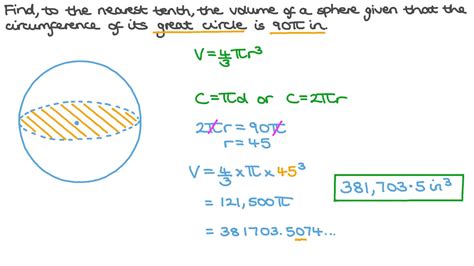 Find, to the nearest tenth, the volume of a sphere given that the
circumference of its great circle is 90π in.
V = 4/3 πr³
C = πd or C = 2πr
2πr = 90π
r = 45
V = 4/3 × π × 45³
= 121,500π
= 381703.5074...
381,703.5 in³